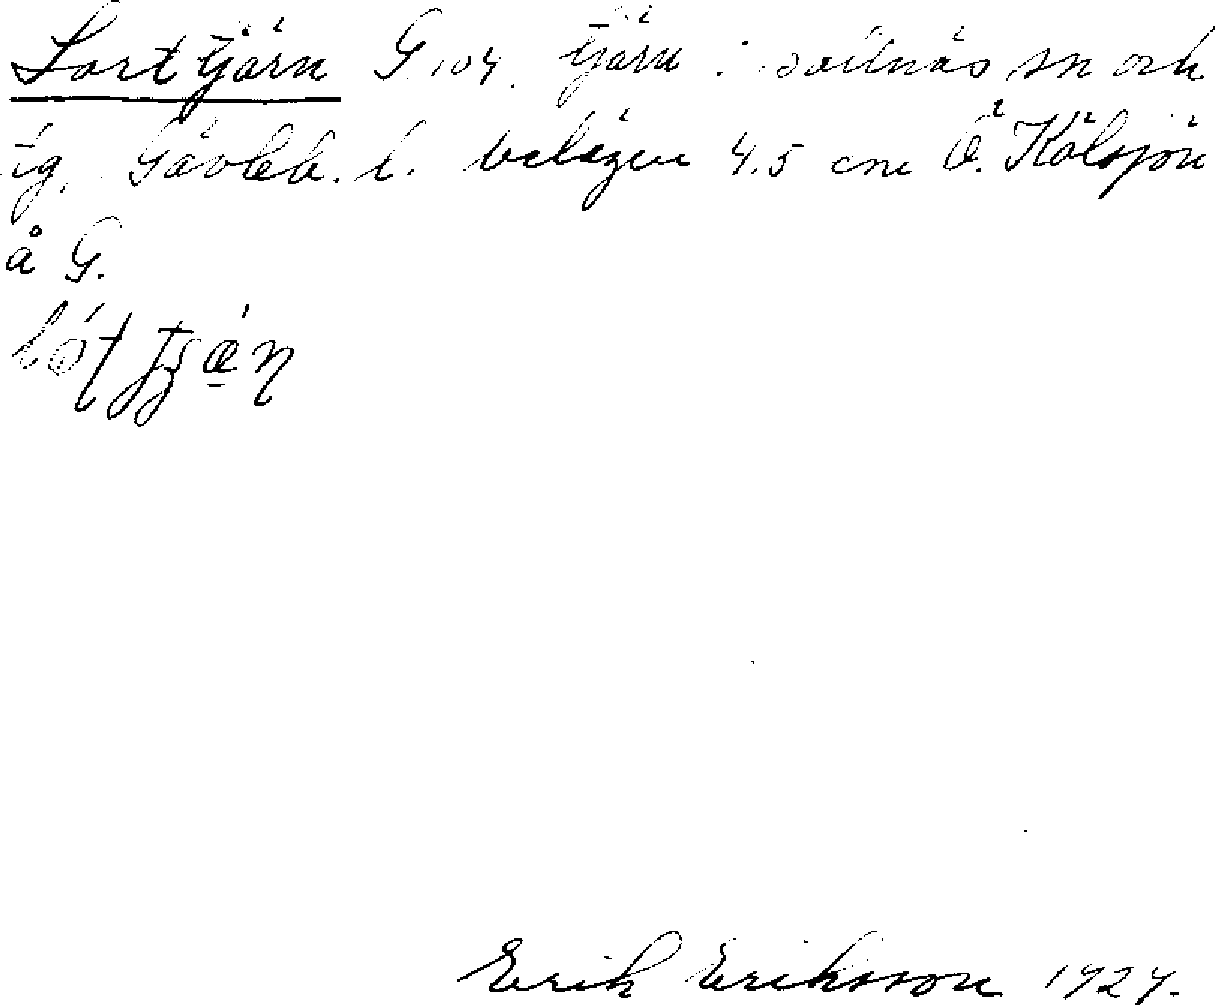 Lorttjärn G 104. tjärn i Voxnäs sn och
tg, Gävleb. l. belägen 4.5 cm Ö. Kölsjön
å G.
Erik Eriksson 1927.